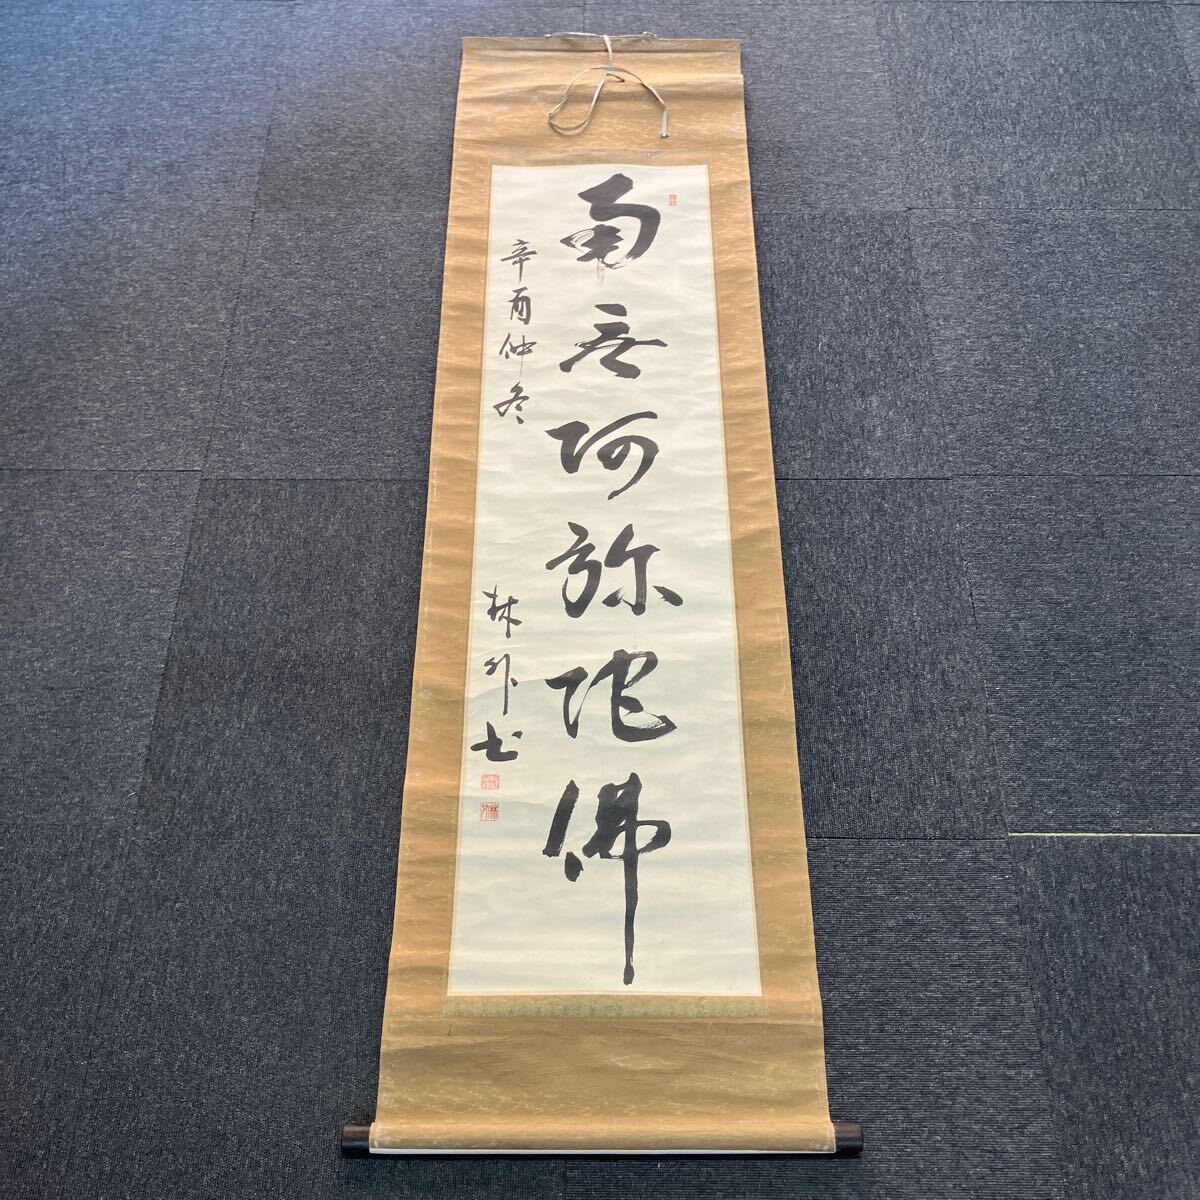 南无阿弥陀佛
辛酉仲冬
林外书